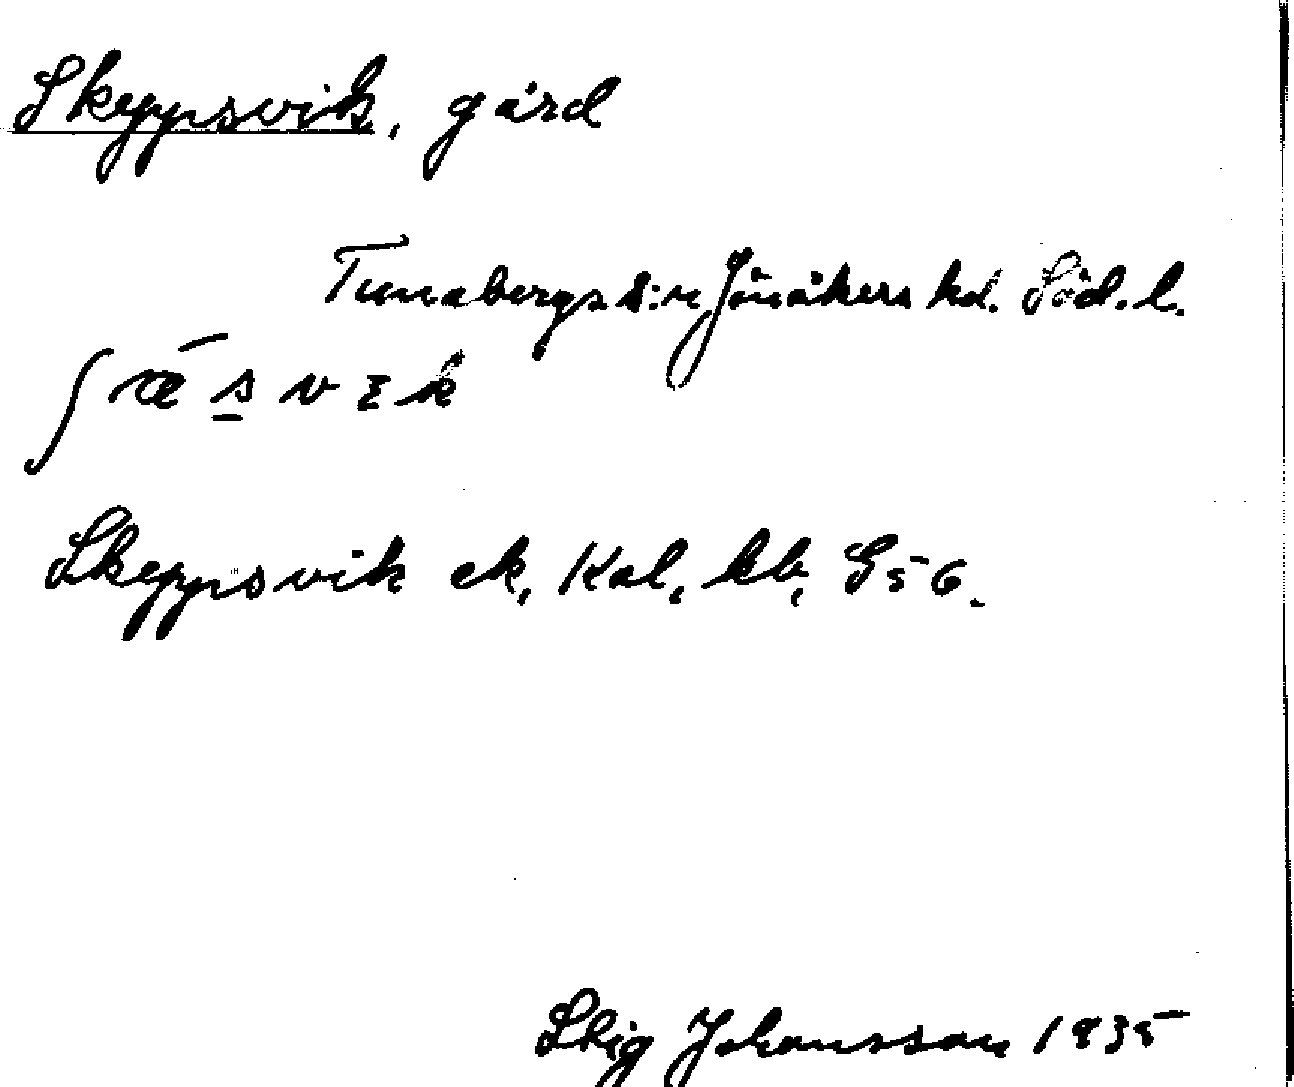 Skeppsvik, gård
Tunabergs s:n Jönåkers hd. Söd. l.
ʃǣs̲vɪk
Skeppsvik ek, Kal, kb, G56.
Stig Johansson 1935